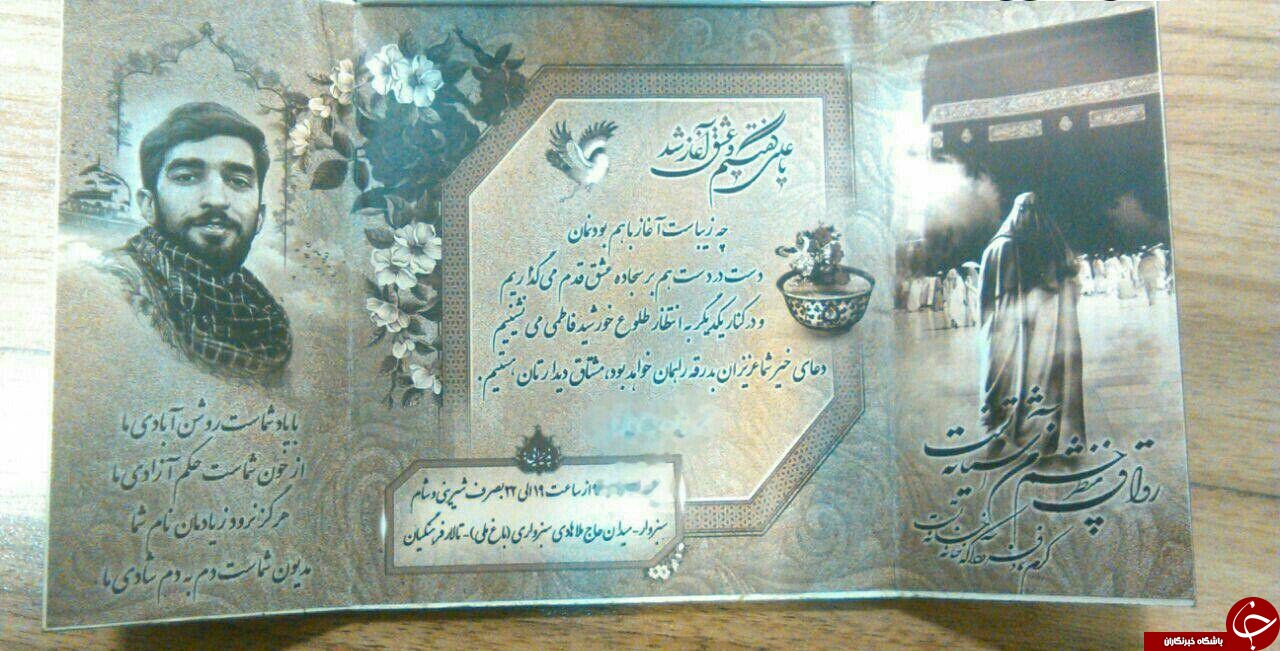 رواق منظر چشم من آشیانه تست
کرم نما و فرود آ که خانه خانه تست
یا علی گفتیم و عشق آغاز شد
چه زیباست آغاز با هم بودنمان
دست در دست هم بر سجاده عشق قدم می گذاریم
و در کنار یکدیگر به انتظار طلوع خورشید فاطمی می نشینیم
دعای خیر شما عزیزان بدرقه راهمان خواهد بود، مشتاق دیدارتان هستیم.
پذیرایی
از ساعت ۱۹ الی ۲۲ بصرف شیرینی و شام
سبزوار - میدان حاج ملاهادی سبزواری (باغ ملی) - تالار فرهنگیان
با یاد شماست روشن آبادی ما
از خون شماست حکم آزادی ما
هرگز نرود ز یادمان نام شما
مدیون شماست دم به دم شادی ما
باشگاه خبرنگاران